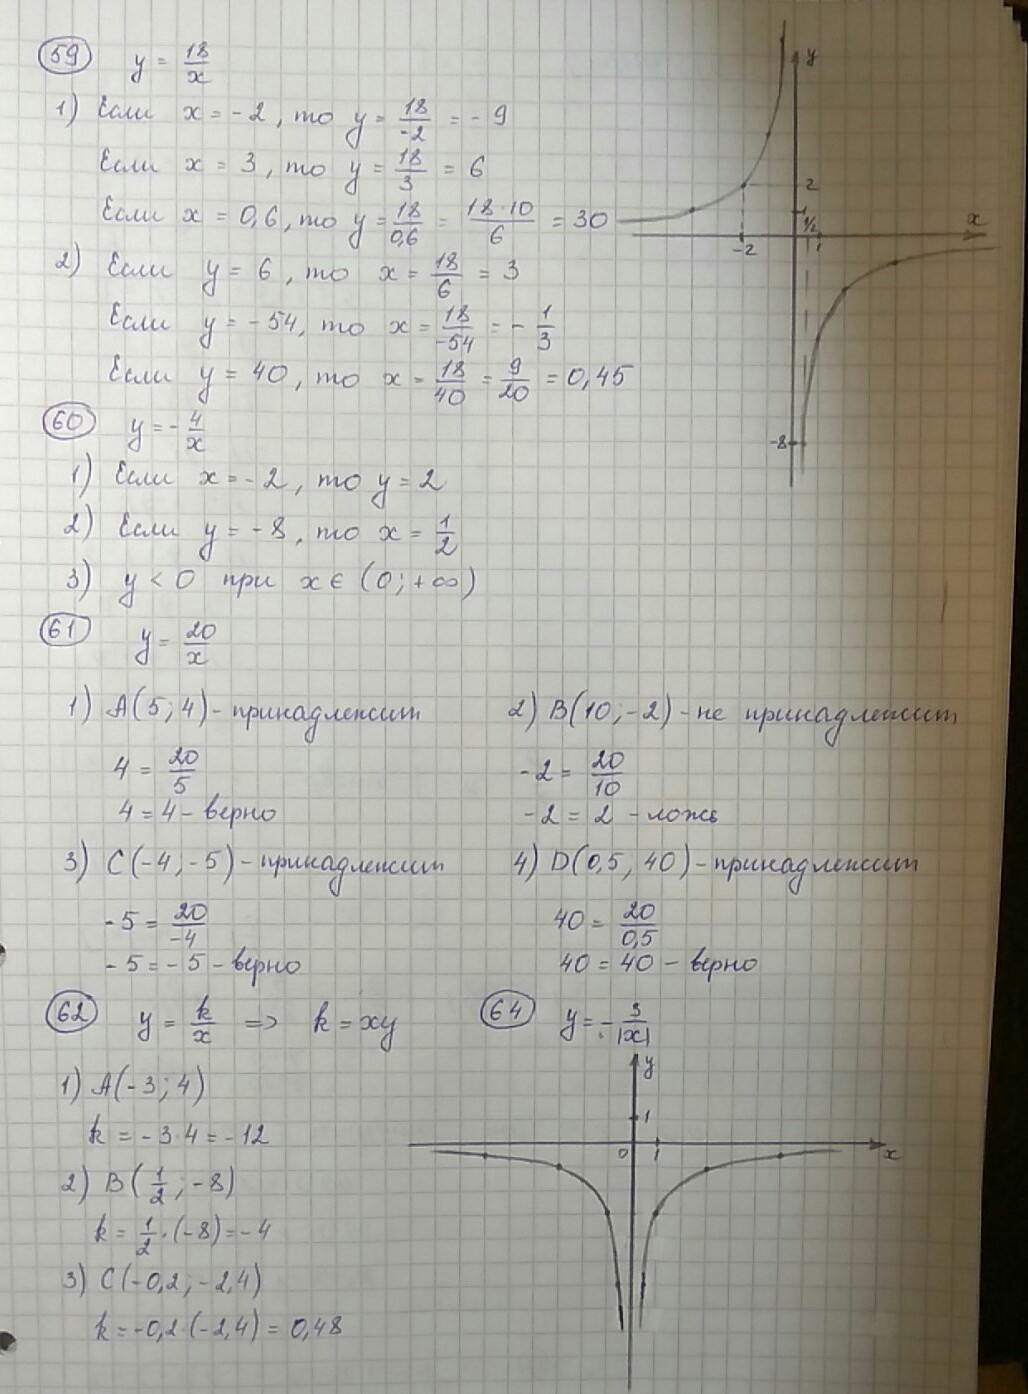 59 y = 18/x
1) Если x = -2, то y = 18/-2 = -9
Если x = 3, то y = 18/3 = 6
Если x = 0,6, то y = 18/0,6 = 18·10/6 = 30
2) Если y = 6, то x = 18/6 = 3
Если y = -54, то x = 18/-54 = -1/3
Если y = 40, то x = 18/40 = 9/20 = 0,45
60 y = -4/x
1) Если x = -2, то y = 2
2) Если y = -8, то x = 1/2
3) y < 0 при x ∈ (0; +∞)
y
2
1
1/2
x
-2
1
-8
61 y = 20/x
1) A(5; 4) - принадлежит
4 = 20/5
4 = 4 - верно
2) B(10; -2) - не принадлежит
-2 = 20/10
-2 = 2 - ложь
3) C(-4; -5) - принадлежит
-5 = 20/-4
-5 = -5 - верно
4) D(0,5; 40) - принадлежит
40 = 20/0,5
40 = 40 - верно
62 y = k/x => k = xy
1) A(-3; 4)
k = -3·4 = -12
2) B(1/2; -8)
k = 1/2·(-8) = -4
3) C(-0,2; -2,4)
k = -0,2·(-2,4) = 0,48
64 y = -3/|x|
y
1
0
1
x